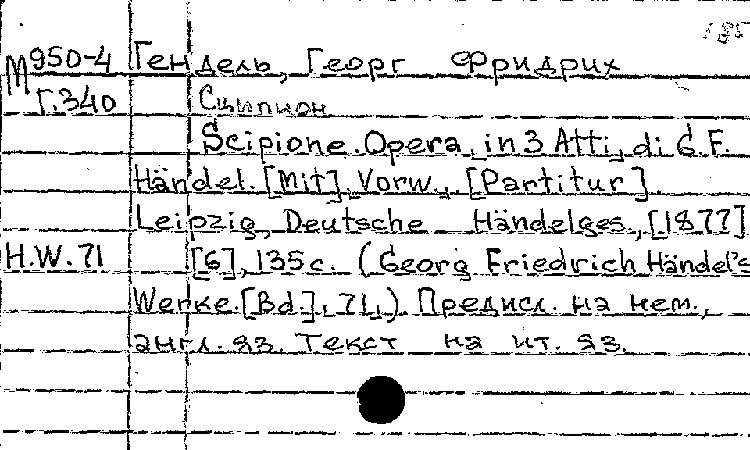 М 950-4 Гендель, Георг Фридрих
Г.340 Сципион
Scipione. Opera in 3 Atti di G. F.
Händel. [Mit] Vorw. [Partitur].
Leipzig, Deutsche Händelges., [1877]
H.W.71 [6], 135 с. (Georg Friedrich Händel's
Werke. [Bd.], 71,). Предисл. на нем.,
англ. яз. Текст на ит. яз.